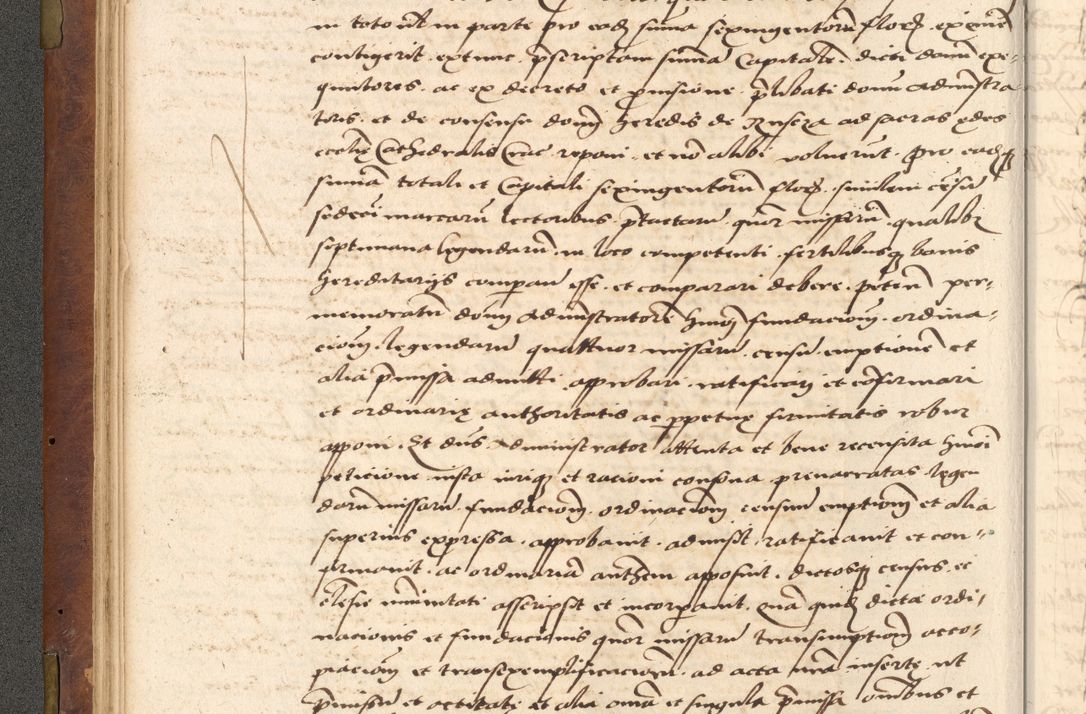 in toto vel in parte pro ead summa sexingentorū floren eximi
contigerit extunc prescriptam summā Capitalē dicti domi exe-
quutores ac ex decreto et provisione prelibati domi Administra
toris et de consensu domi heredis de Ruscza ad sacras edes
ecclie Cathedralis Crac reponi et nō alibi voluerūt pro eadq
summa totali et Capitali sexingentorū floren similem censū
sedeci marcarū lectoribus pretactarū quor missarū qualibz
septimana legendarū in loco competenti fertilibusq bonis
hereditariis comparari esse et comparari debere peterū per-
memoratū domi Administratorē hmoi fundacionē ordina-
cionē legendarū quattuor missarū censū emptionē et
alia premissa admitti approbari ratificari et cōfirmari
et ordinarie authoritatis ac perpetue firmitatis robur
apponi Et dns Administrator attenta et bene recensita hmoi
peticione iusta iuriq et racioni consona prenarratas legen
darū missarū fundacionē ordinacionē censum emptionē et alia
superius expressa approbavit admisit ratificavit et con-
firmavit ac ordinariā authem apposuit dictosq census ec
clesie immunitati asscripsit et incorporavit quā quidē dictae ordi-
nacionis et fundacionis quor missarū transumptionē acco-
piacionē et transexemplificacionē ad acta nrā inserte ut
premissū et actitati et alia omā et singula premissa omibus et